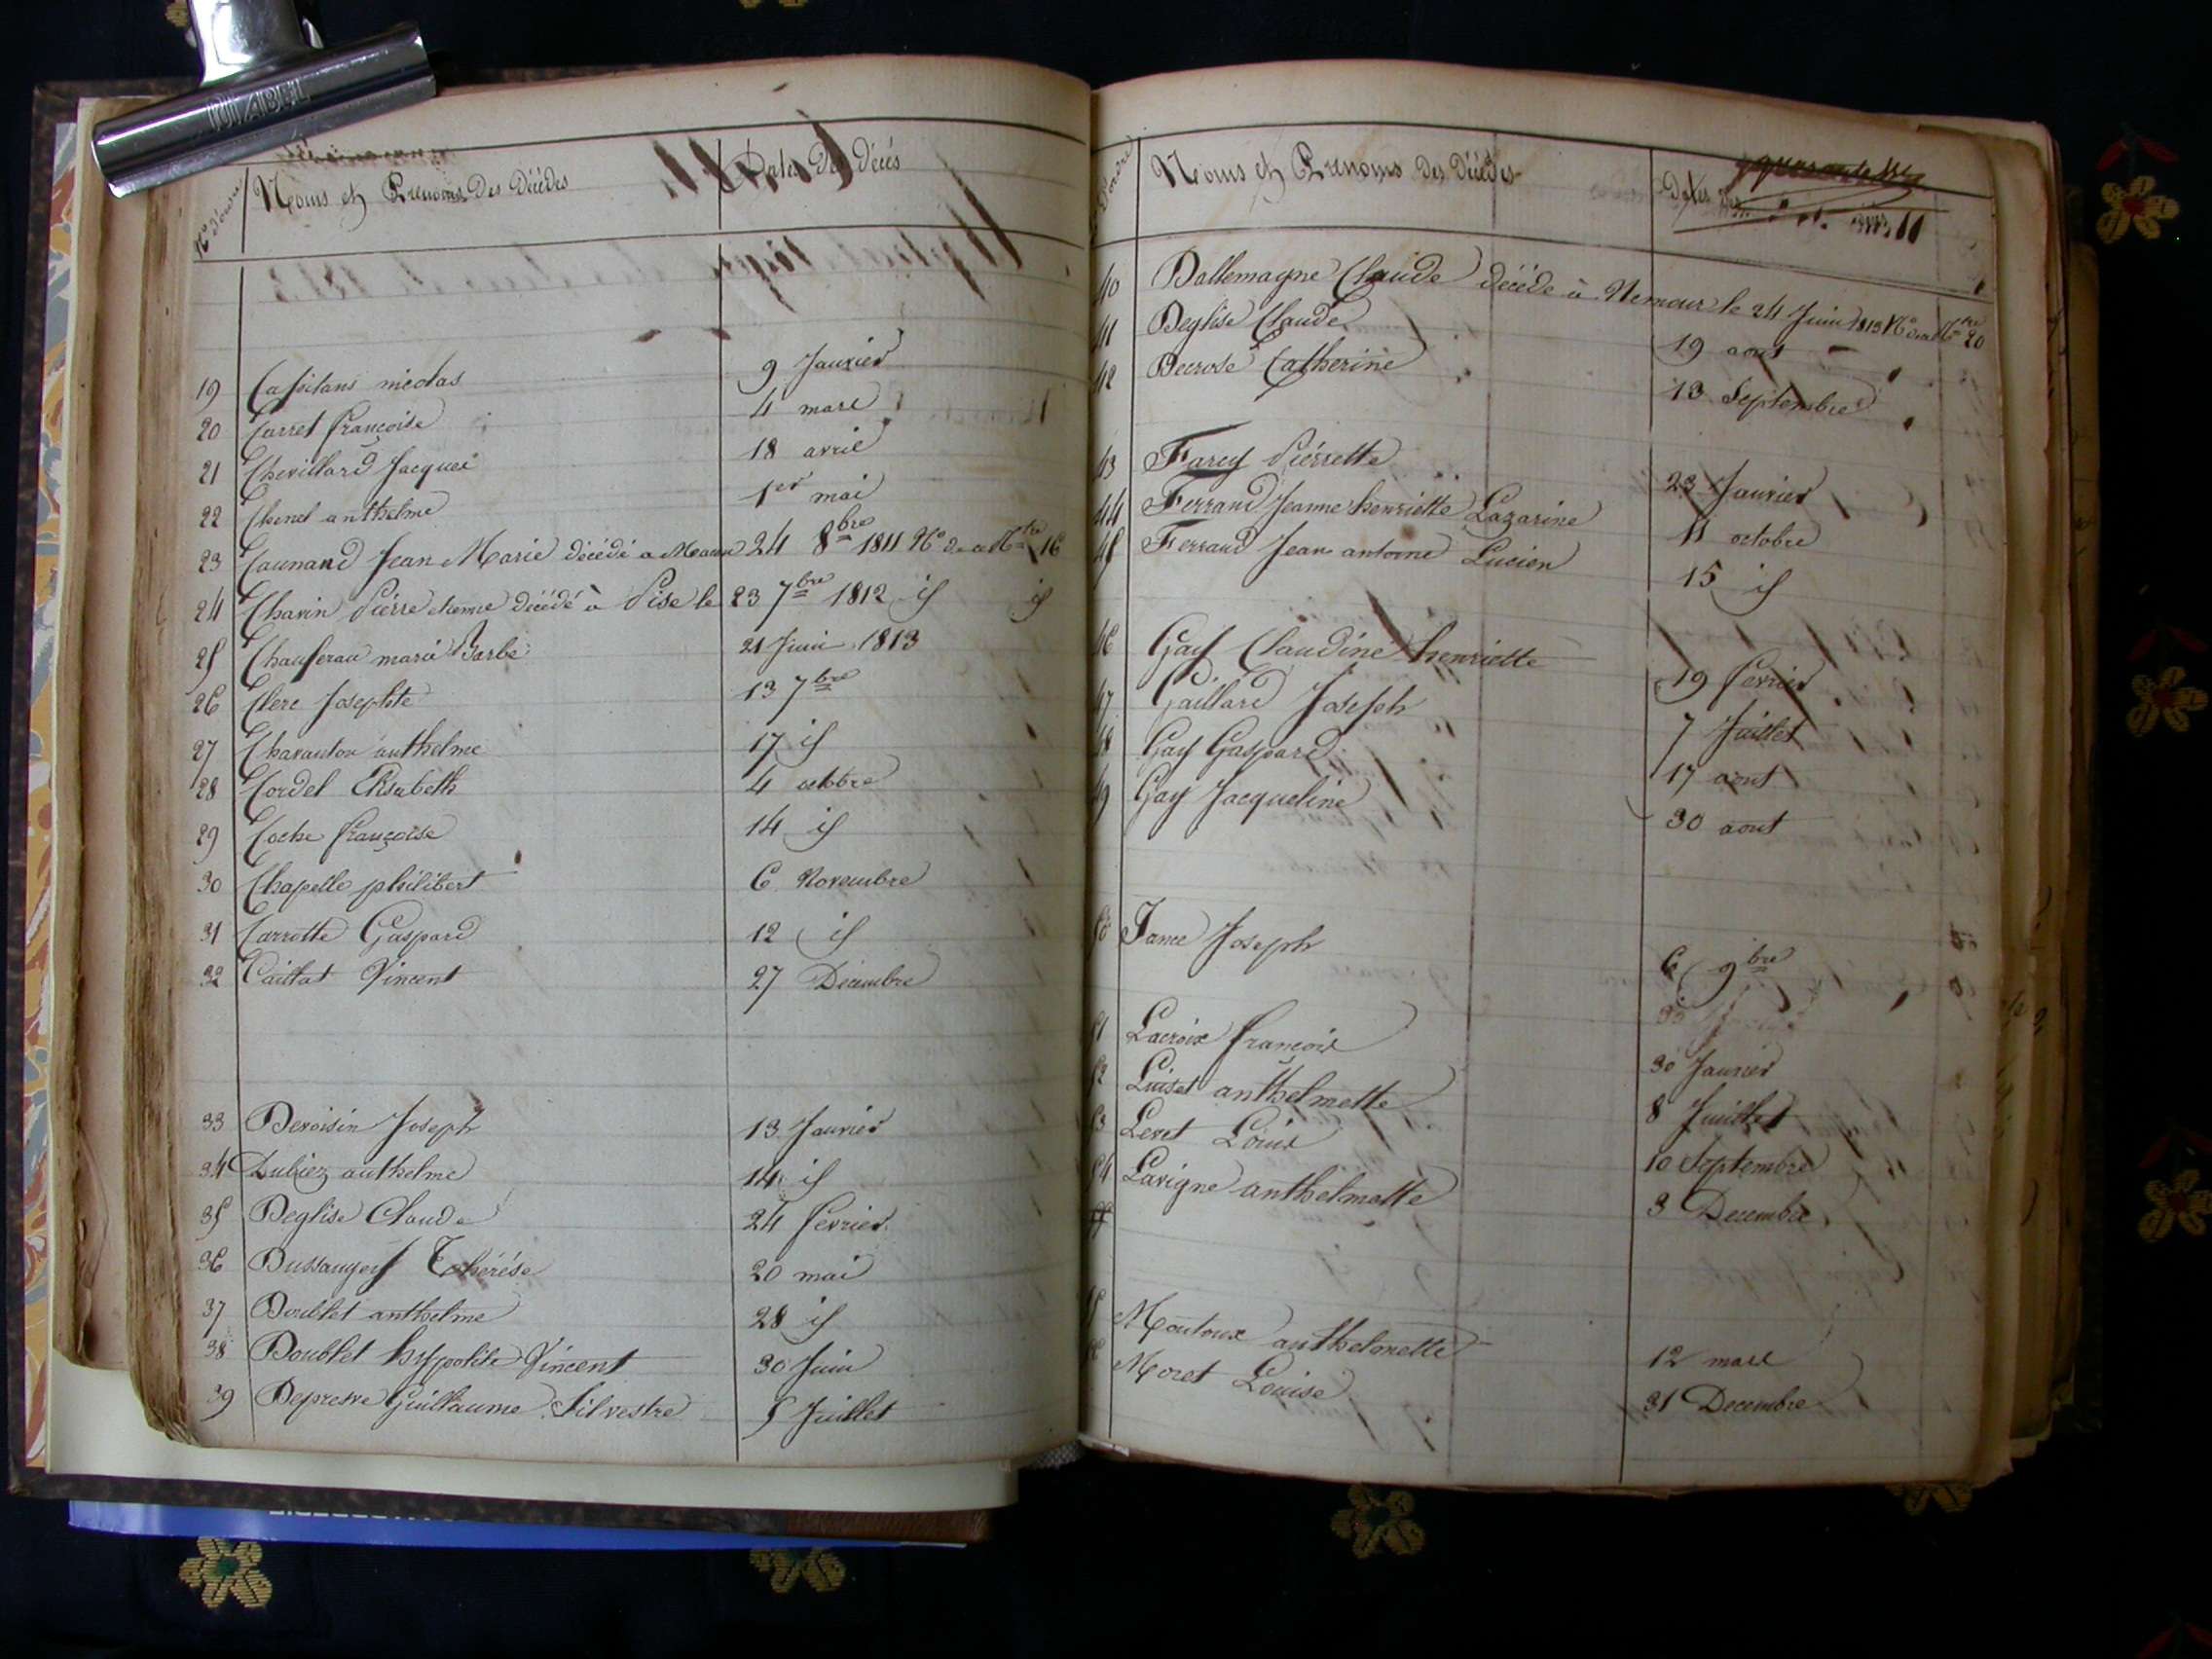 DIABEL
No d'ordre Noms et Prenoms Des Décédés Dates Des Décés
19 Capitans nicolas 9 Janvier
20 Carret françoise 4 mars
21 Chevillard Jacques 18 avril
22 Chenel anthelme 1er mai
23 Caunand Jean Marie décédé a 24 8bre 1811 No 16
24 Chavin Piérre décédé à Pise le 23 7bre 1812 id id
25 Chauferau marie Barbe 21 Juin 1813
26 Clerc Josephte 13 7bre
27 Charanton anthelme 17 id
28 Cordel Elisabeth 4 octobre
29 Coche françoise 14 id
30 Chapelle philibert 6 Novembre
31 Carrotte Gaspard 12 id
32 Caillat Vincent 27 Décembre
33 Devoisin Joseph 13 Janvier
34 Dubiez anthelme 14 id
35 Deglise Claude 24 fevrier
36 Dussaugey Thérése 20 mai
37 Doublet anthelme 28 id
38 Doublet hyppolite Vincent 30 Juin
39 Depresve Guillaume Silvestre 5 Juillet
d'ordre Noms et Prenoms Des Décédés Dates
40 Dallemagne Claude décédé à Nemour le 24 Juin 1813 No 20
41 Deglise Claude 19 aout
42 Decrose Catherine 13 Septembre
43 Farcy Piérrette 23 Janvier
44 Ferrand Jeanne henriette Lazarine 11 octobre
45 Ferrand Jean antoine Lucien 15 id
46 Gay Claudine henriette 19 fevrier
47 Gaillard Joseph 7 Juillet
48 Gay Gaspard 17 aout
49 Gay Jacqueline 30 aout
50 Jance Joseph 6 9bre
51 Lacroix françois 30 Janvier
52 Luiset anthelmette 8 Juillet
53 Levet Louis 10 Septembre
54 Lavigne anthelmette 3 Decembre
55 Moutoux anthelmette 12 mars
56 Moret Louise 31 Decembre